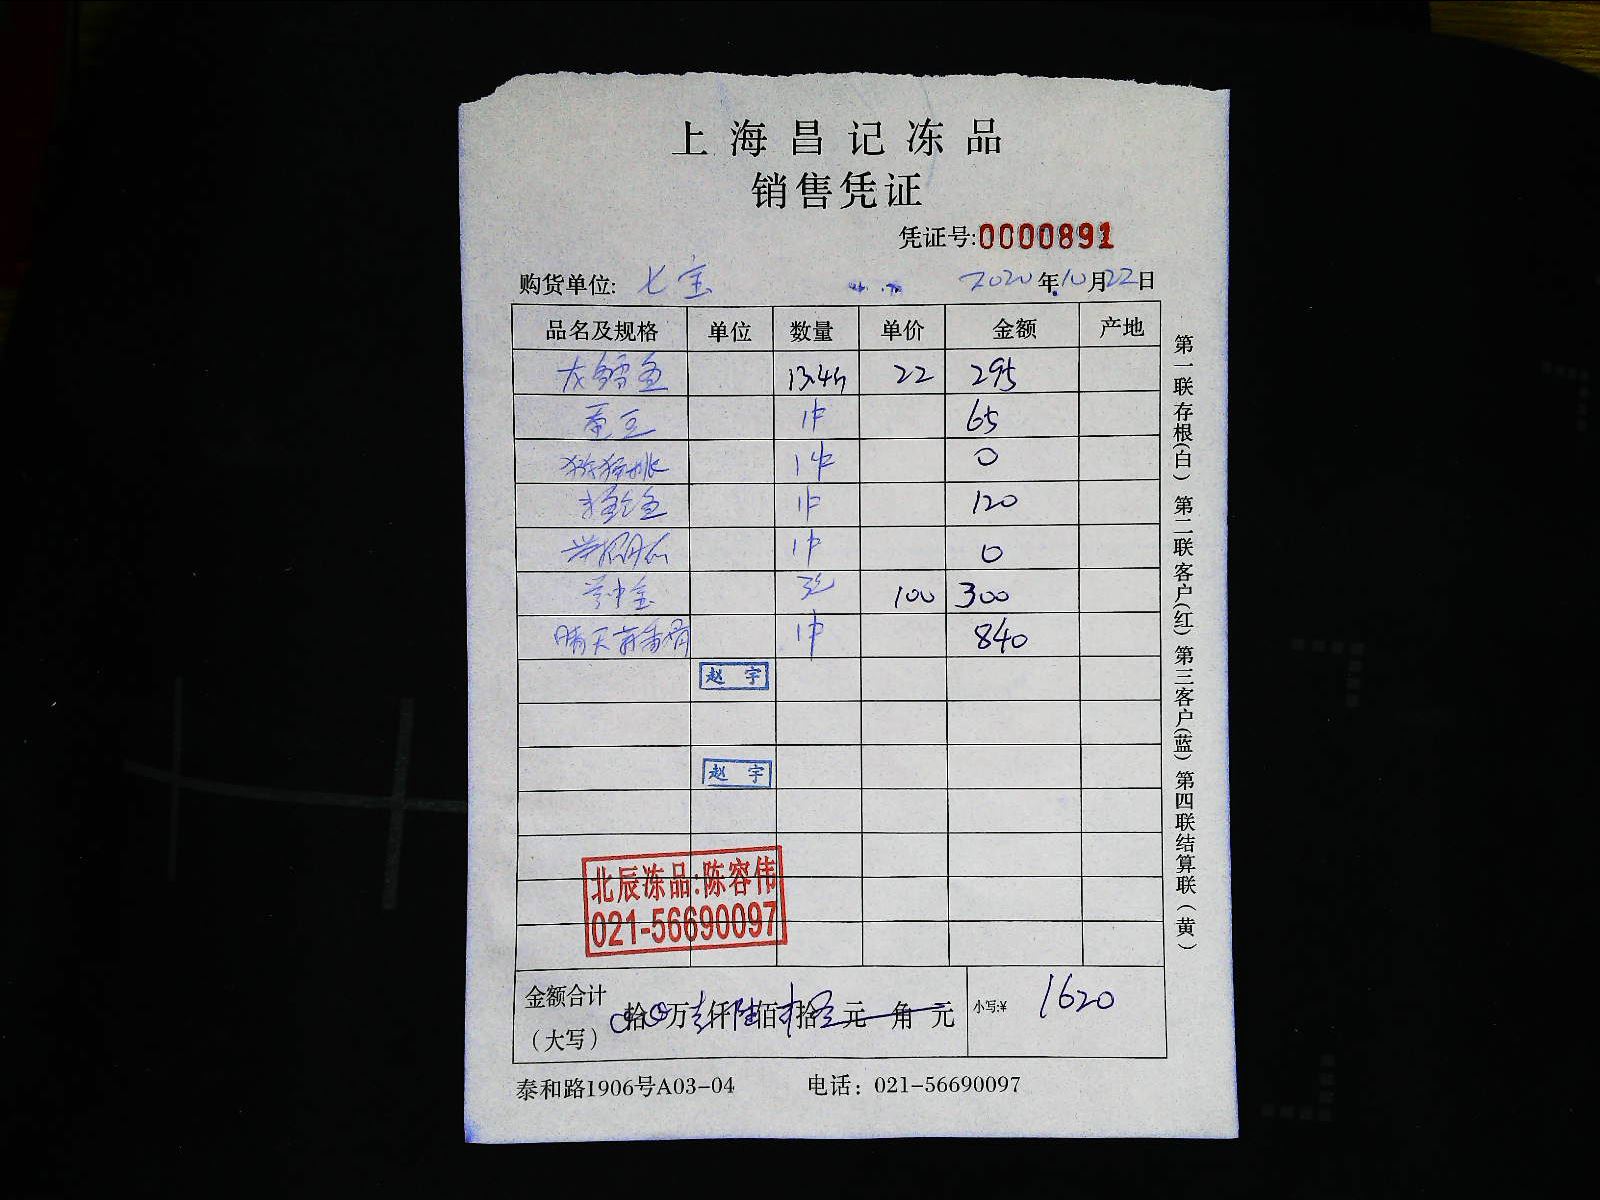 上海昌记冻品
销售凭证
凭证号:0000891
购货单位: 七宝 2020年10月22日
品名及规格 单位 数量 单价 金额 产地
龙鳕鱼 13.4斤 22 295
蚕豆 1件 65
猕猴桃 1件 0
1件 120
1件 0
3 100 300
晴天 1件 840
赵宇
赵宇
北辰冻品:陈容伟
021-56690097
金额合计
(大写)
拾万壹仟陆佰贰拾元角元 小写:¥ 1620
泰和路1906号A03-04 电话: 021-56690097
第一联存根(白) 第二联客户(红) 第三客户(蓝) 第四联结算联(黄)